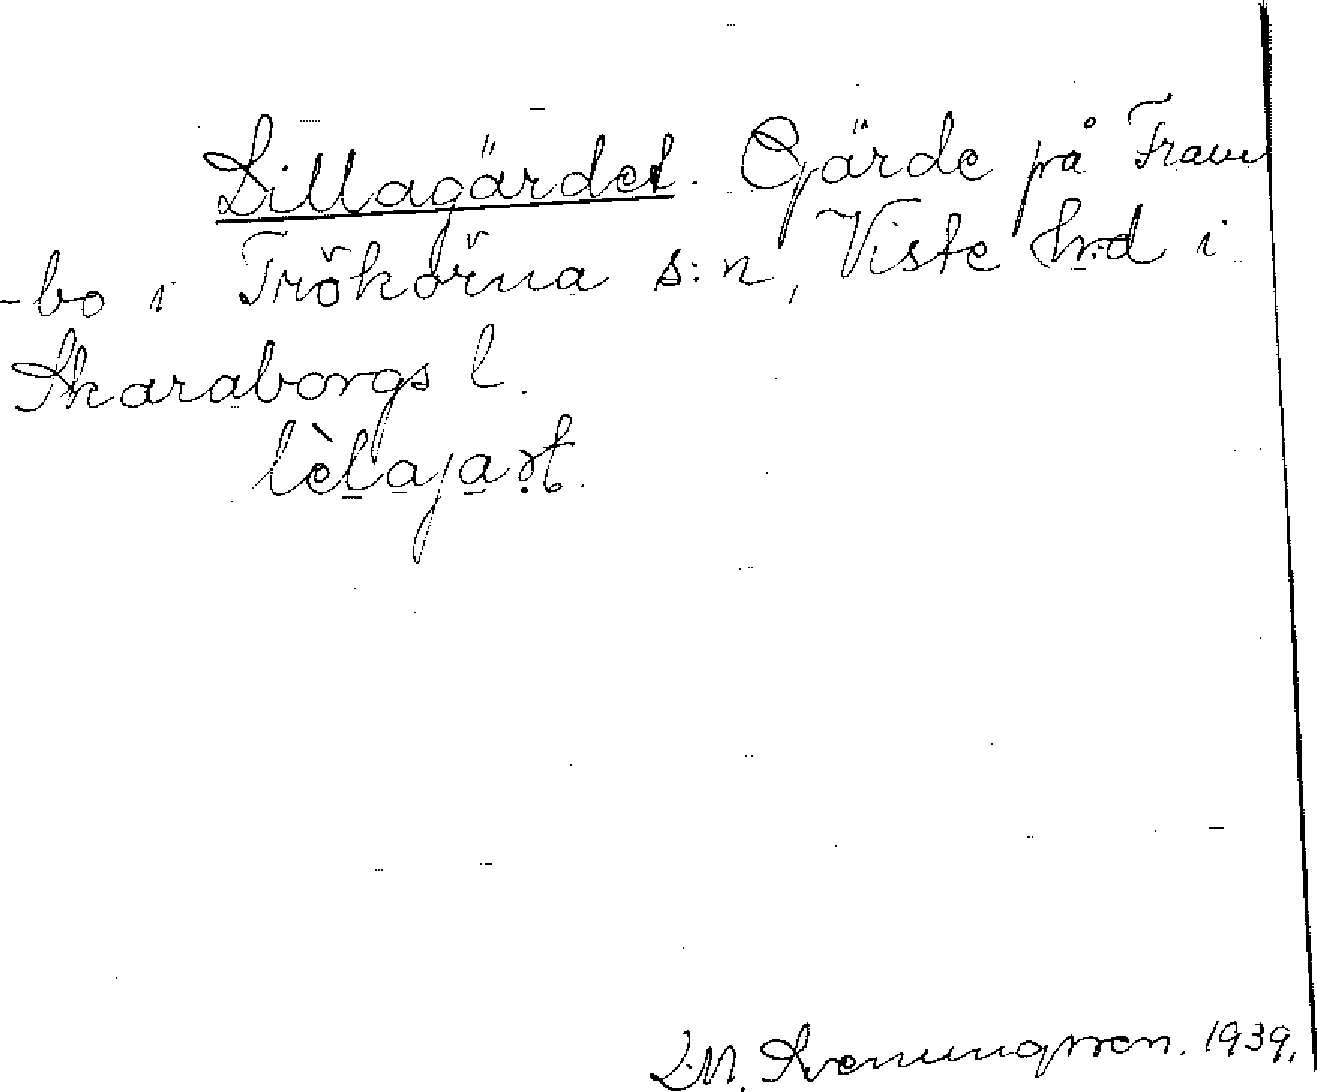 Lillagärdet. Gärde på Fram
-bo i Trökörna s:n, Viste hrd i
Skaraborgs l.
lèlajaṛt.
L.M. Svenungsson. 1939.